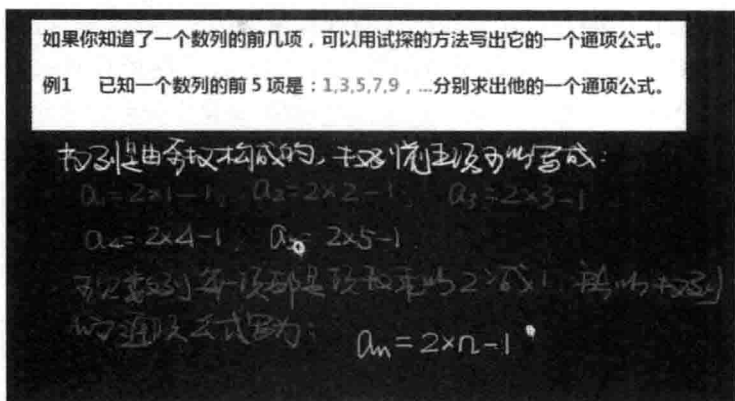 如果你知道了一个数列的前几项，可以用试探的方法写出它的一个通项公式。
例1 已知一个数列的前 5 项是：1,3,5,7,9，...分别求出他的一个通项公式。
数列是由奇数构成的，数列前五项可以写成：
a₁=2×1-1, a₂=2×2-1, a₃=2×3-1
a₄=2×4-1, a₅ 2×5-1
可见数列每一项都是项数乘以2减1，所以数列
的通项公式写为：aₙ=2×n-1